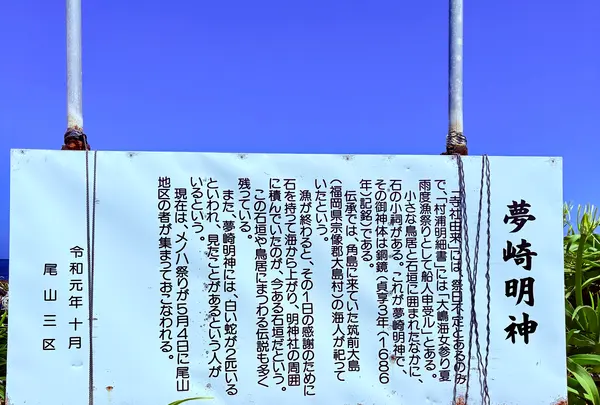 夢崎明神
「寺社由来」には、祭日不定とあるのみ
で、「村浦明細書」には「大嶋海女参り夏
雨度漁祭りとして船人申受ル」とある。
小さな鳥居と石垣に囲まれたなかに、
石の小祠がある。これが夢崎明神で、
その御神体は銅鏡(貞享3年〈1686
年〉記銘)である。
伝承では、角島に来ていた筑前大島
(福岡県宗像郡大島村)の海人が祀って
いたという。
漁が終わると、その1日の感謝のために
石を持って海から上がり、明神社の周囲
に積んでいたのが、今ある石垣だという。
この石垣や鳥居にまつわる伝説も多く
残っている。
また、夢崎明神には、白い蛇が2匹いる
といわれ、見たことがあるという人が
いるという。
現在は、メノハ祭りが5月4日に尾山
地区の者が集まっておこなわれる。
令和元年十月
尾山三区